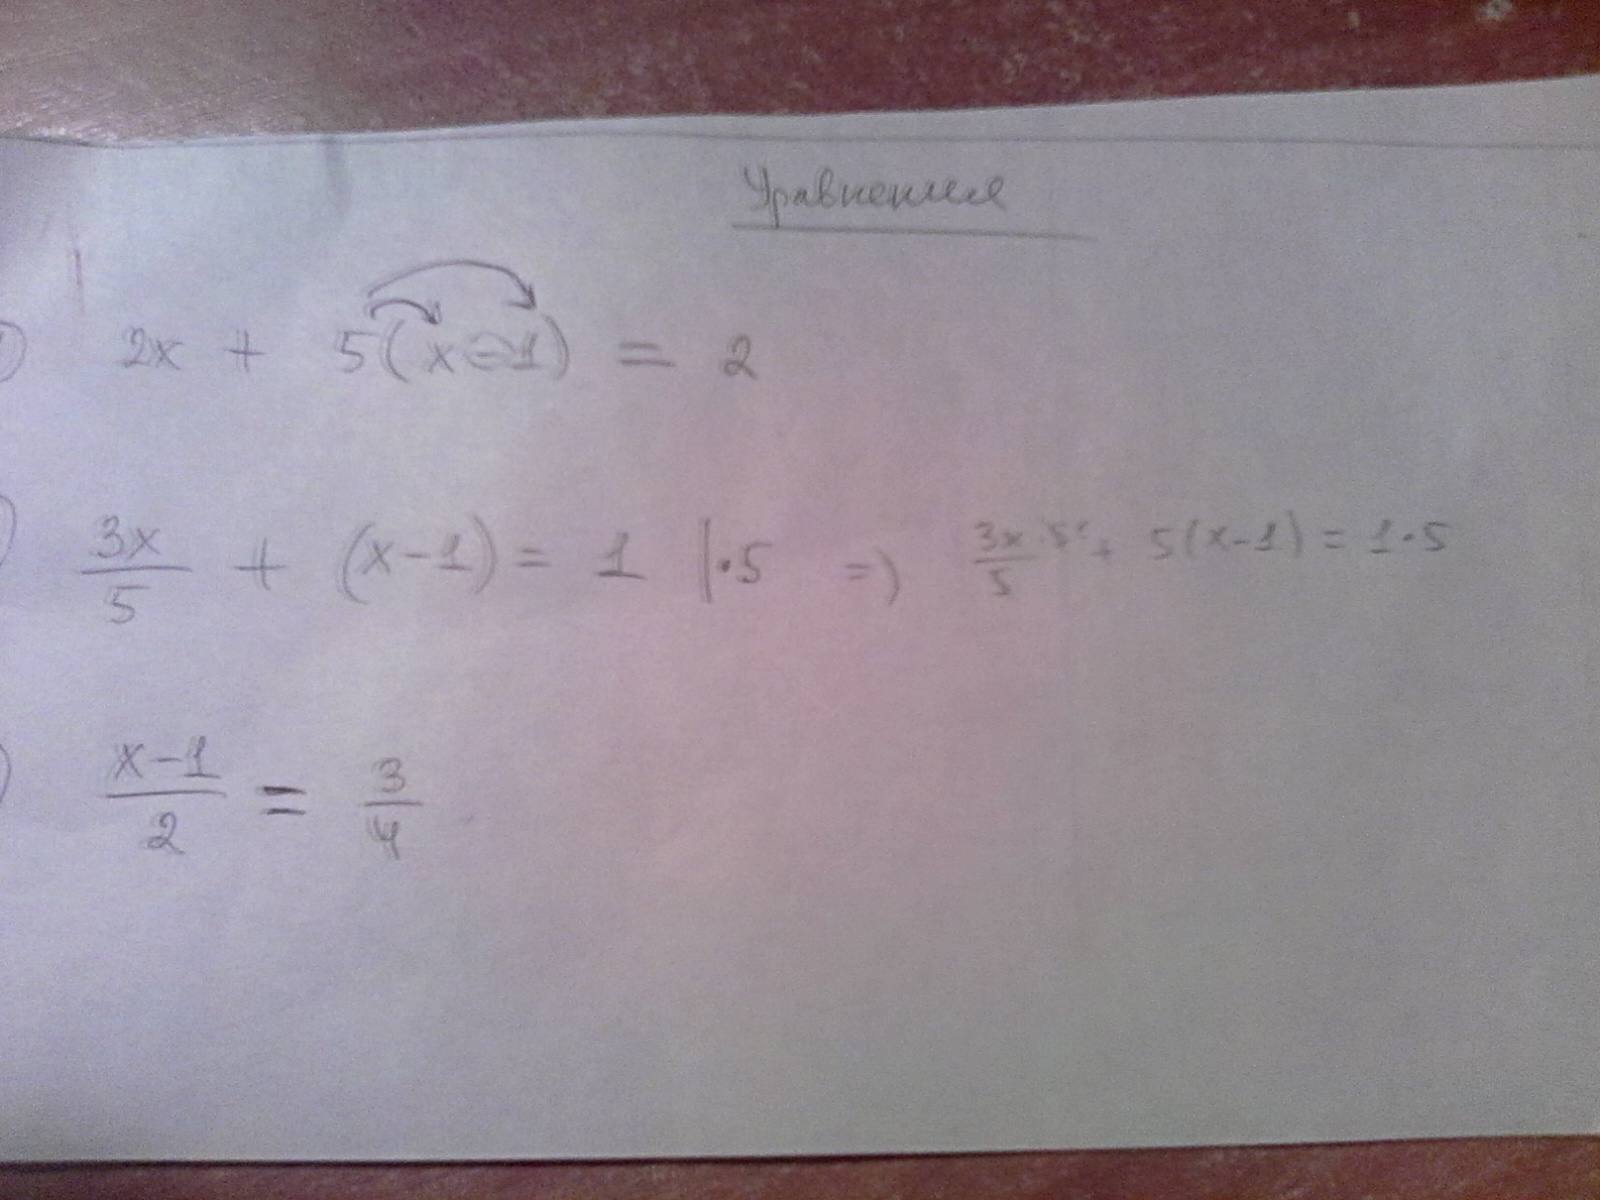 Уравнения
2x + 5(x-1) = 2
3x/5 + (x-1) = 1 |·5 => 3x/5 ·5 + 5(x-1) = 1·5
x-1/2 = 3/4